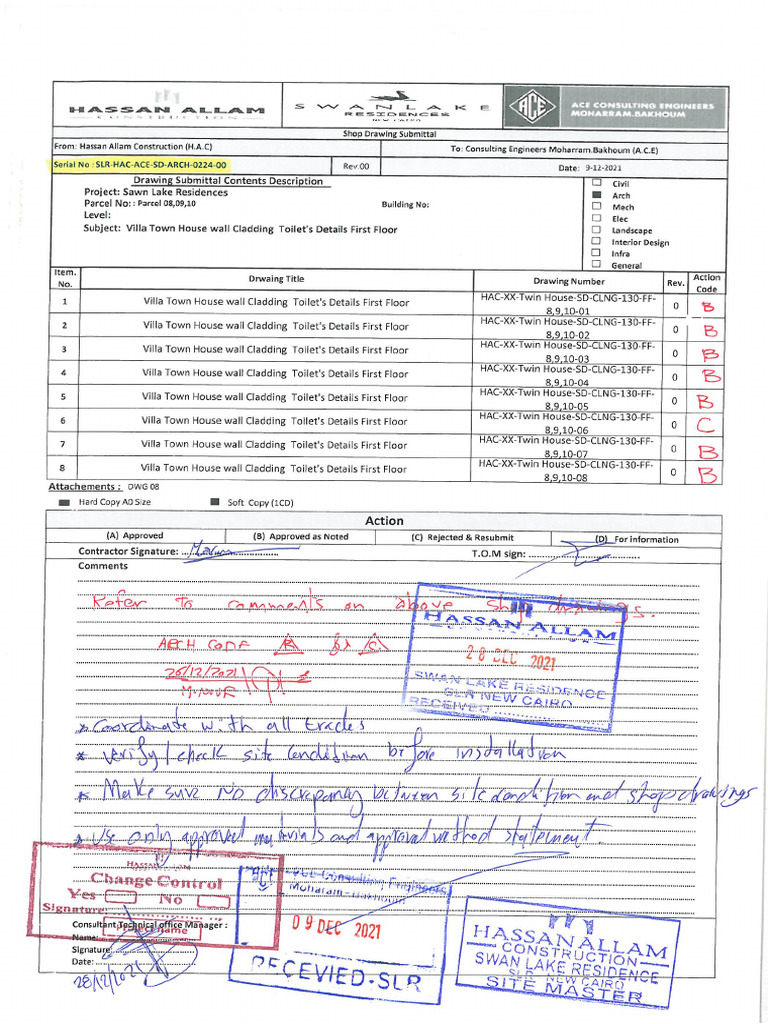 HASSAN ALLAM
CONSTRUCTION
SWANLAKE
RESIDENCES
NEW CAIRO
ACE
ACE CONSULTING ENGINEERS
MOHARRAM.BAKHOUM
Shop Drawing Submittal
From: Hassan Allam Construction (H.A.C)
To: Consulting Engineers Moharram.Bakhoum (A.C.E)
Serial No : SLR-HAC-ACE-SD-ARCH-0224-00
Rev.00
Date: 9-12-2021
Drawing Submittal Contents Description
Project: Sawn Lake Residences
Parcel No: : Parcel 08,09,10
Building No:
Level:
Subject: Villa Town House wall Cladding Toilet's Details First Floor
Civil
Arch
Mech
Elec
Landscape
Interior Design
Infra
General
Item. No. Drwaing Title Drawing Number Rev. Action Code
1 Villa Town House wall Cladding Toilet's Details First Floor HAC-XX-Twin House-SD-CLNG-130-FF-8,9,10-01 0 B
2 Villa Town House wall Cladding Toilet's Details First Floor HAC-XX-Twin House-SD-CLNG-130-FF-8,9,10-02 0 B
3 Villa Town House wall Cladding Toilet's Details First Floor HAC-XX-Twin House-SD-CLNG-130-FF-8,9,10-03 0 B
4 Villa Town House wall Cladding Toilet's Details First Floor HAC-XX-Twin House-SD-CLNG-130-FF-8,9,10-04 0 B
5 Villa Town House wall Cladding Toilet's Details First Floor HAC-XX-Twin House-SD-CLNG-130-FF-8,9,10-05 0 B
6 Villa Town House wall Cladding Toilet's Details First Floor HAC-XX-Twin House-SD-CLNG-130-FF-8,9,10-06 0 C
7 Villa Town House wall Cladding Toilet's Details First Floor HAC-XX-Twin House-SD-CLNG-130-FF-8,9,10-07 0 B
8 Villa Town House wall Cladding Toilet's Details First Floor HAC-XX-Twin House-SD-CLNG-130-FF-8,9,10-08 0 B
Attachements : DWG 08
Hard Copy A0 Size
Soft Copy (1CD)
Action
(A) Approved
(B) Approved as Noted
(C) Rejected & Resubmit
(D) For information
Contractor Signature:
T.O.M sign:
Comments
Refer to comments on above shop drawings.
ARCH CODE B & C
26/12/2021
HASSAN ALLAM
28 DEC 2021
SWAN LAKE RESIDENCE
SLR NEW CAIRO
RECEIVED
* Coordinate with all trades
* verify/check site condition before installation
* Make sure No discrepancy between site condition and shop drawings
* Use only approved materials and approval method statement.
HASSAN ALLAM
Change Control
Yes No
Signature:
ACE Consulting Engineers
Moharam-Bakhoum
09 DEC 2021
RECEVIED-SLR
HASSAN ALLAM
CONSTRUCTION
SWAN LAKE RESIDENCE
SLR NEW CAIRO
SITE MASTER
Consultant Technical office Manager :
Name:
Signature:
Date:
28/12/2021